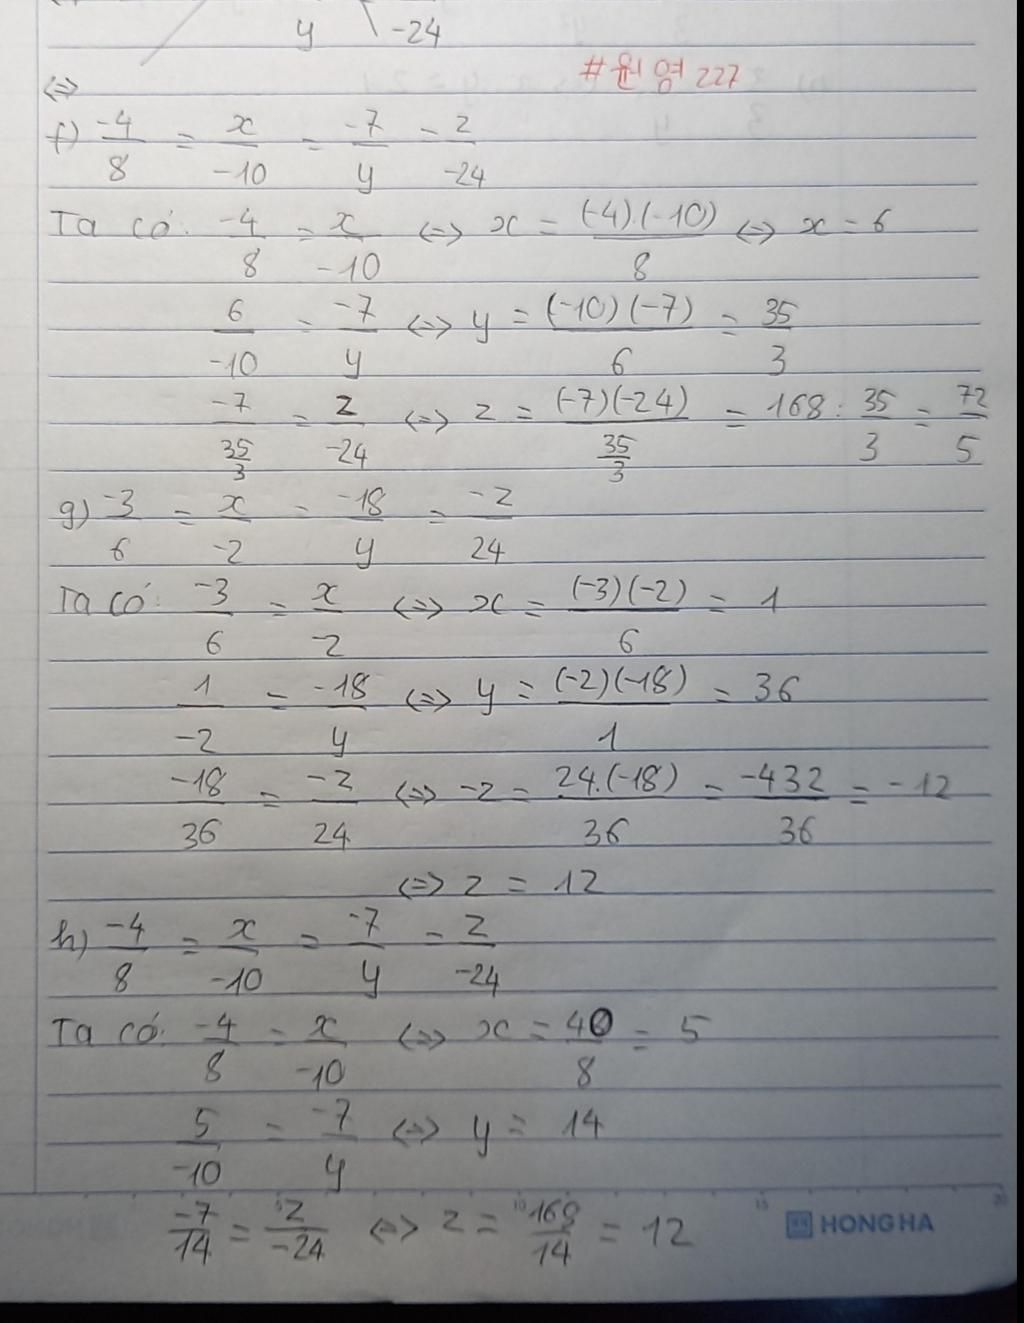 y -24
#원영227
⇔
f) -4/8 = x/-10 = -7/y = z/-24
Ta có: -4/8 = x/-10 ⇔ x = (-4).(-10)/8 ⇔ x = 6
6/-10 = -7/y ⇔ y = (-10)(-7)/6 = 35/3
-7/(35/3) = z/-24 ⇔ z = (-7)(-24)/(35/3) = 168 : 35/3 = 72/5
g) -3/6 = x/-2 = -18/y = -z/24
Ta có: -3/6 = x/-2 ⇔ x = (-3)(-2)/6 = 1
1/-2 = -18/y ⇔ y = (-2)(-18)/1 = 36
-18/36 = -z/24 ⇔ -z = 24.(-18)/36 = -432/36 = -12
⇔ z = 12
h) -4/8 = x/-10 = -7/y = z/-24
Ta có: -4/8 = x/-10 ⇔ x = 40/8 = 5
5/-10 = -7/y ⇔ y = 14
-7/14 = z/-24 ⇔ z = 168/14 = 12
HONG HA